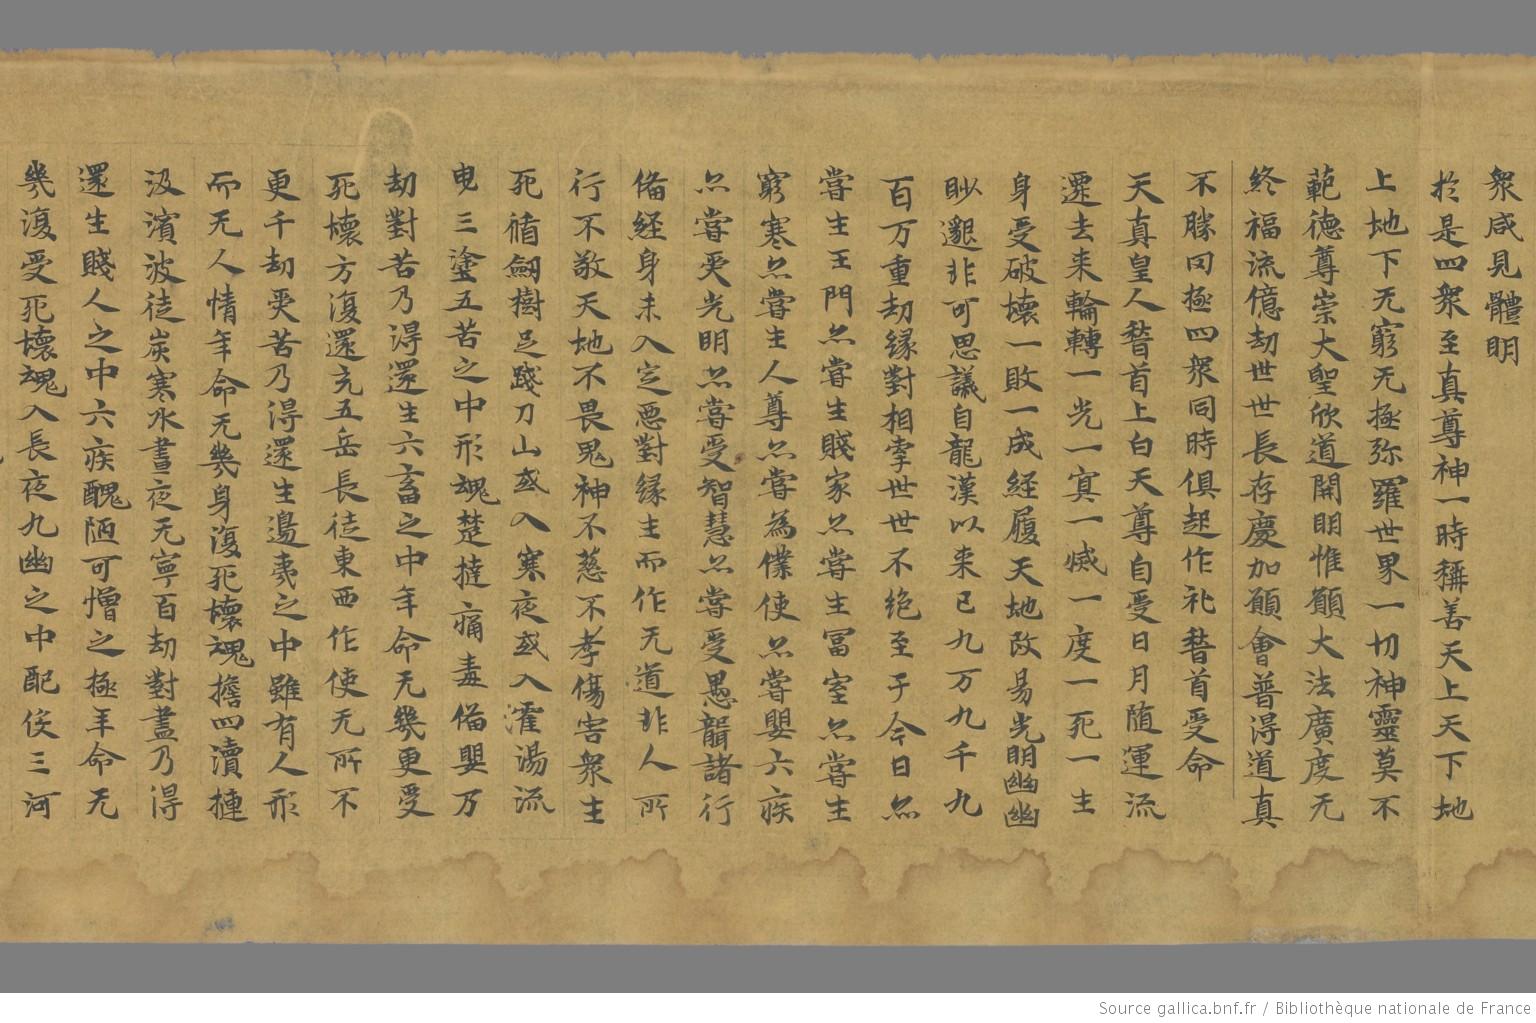 衆咸見體明
於是四衆至真尊神一時稱善天上天下地
上地下无窮无極弥羅世界一切神靈莫不
範德尊崇大聖欣道開明惟願大法廣度无
終福流億劫世世長存慶加願會普得道真
不勝罔極四衆同時俱起作礼稽首受命
天真皇人稽首上白天尊自受日月随運流
遷去来輪轉一光一冥一滅一度一死一生
身受破壞一敗一成經履天地改易光明幽幽
眇邈非可思議自龍漢以来已九万九千九
百万重劫緣對相牽世世不绝至于今日亦
當生王門亦當生賤家亦當生冨室亦當生
窮寒亦當生人尊亦當為僕使亦當嬰六疾
亦當受光明亦當受智慧亦當受愚聾諸行
俻経身未入定惡對緣生而作无道非人所
行不敬天地不畏鬼神不慈不孝傷害衆生
死循劒樹足踐刀山或入寒夜或入濩湯流
曳三塗五苦之中形魂楚撻痛毒俻嬰乃
劫對苦乃淂還生六畜之中年命无幾更受
死壞方復還充五岳長徒東西作使无所不
更千劫受苦乃淂還生邊夷之中雖有人形
而无人情年命无幾身復死壞魂擔四瀆揵
汲濱波徒炭寒水晝夜无寧百劫對盡乃得
還生賤人之中六疾醜陋可憎之極年命无
幾復受死壞魂入長夜九幽之中配役三河
Source gallica.bnf.fr / Bibliothèque nationale de France